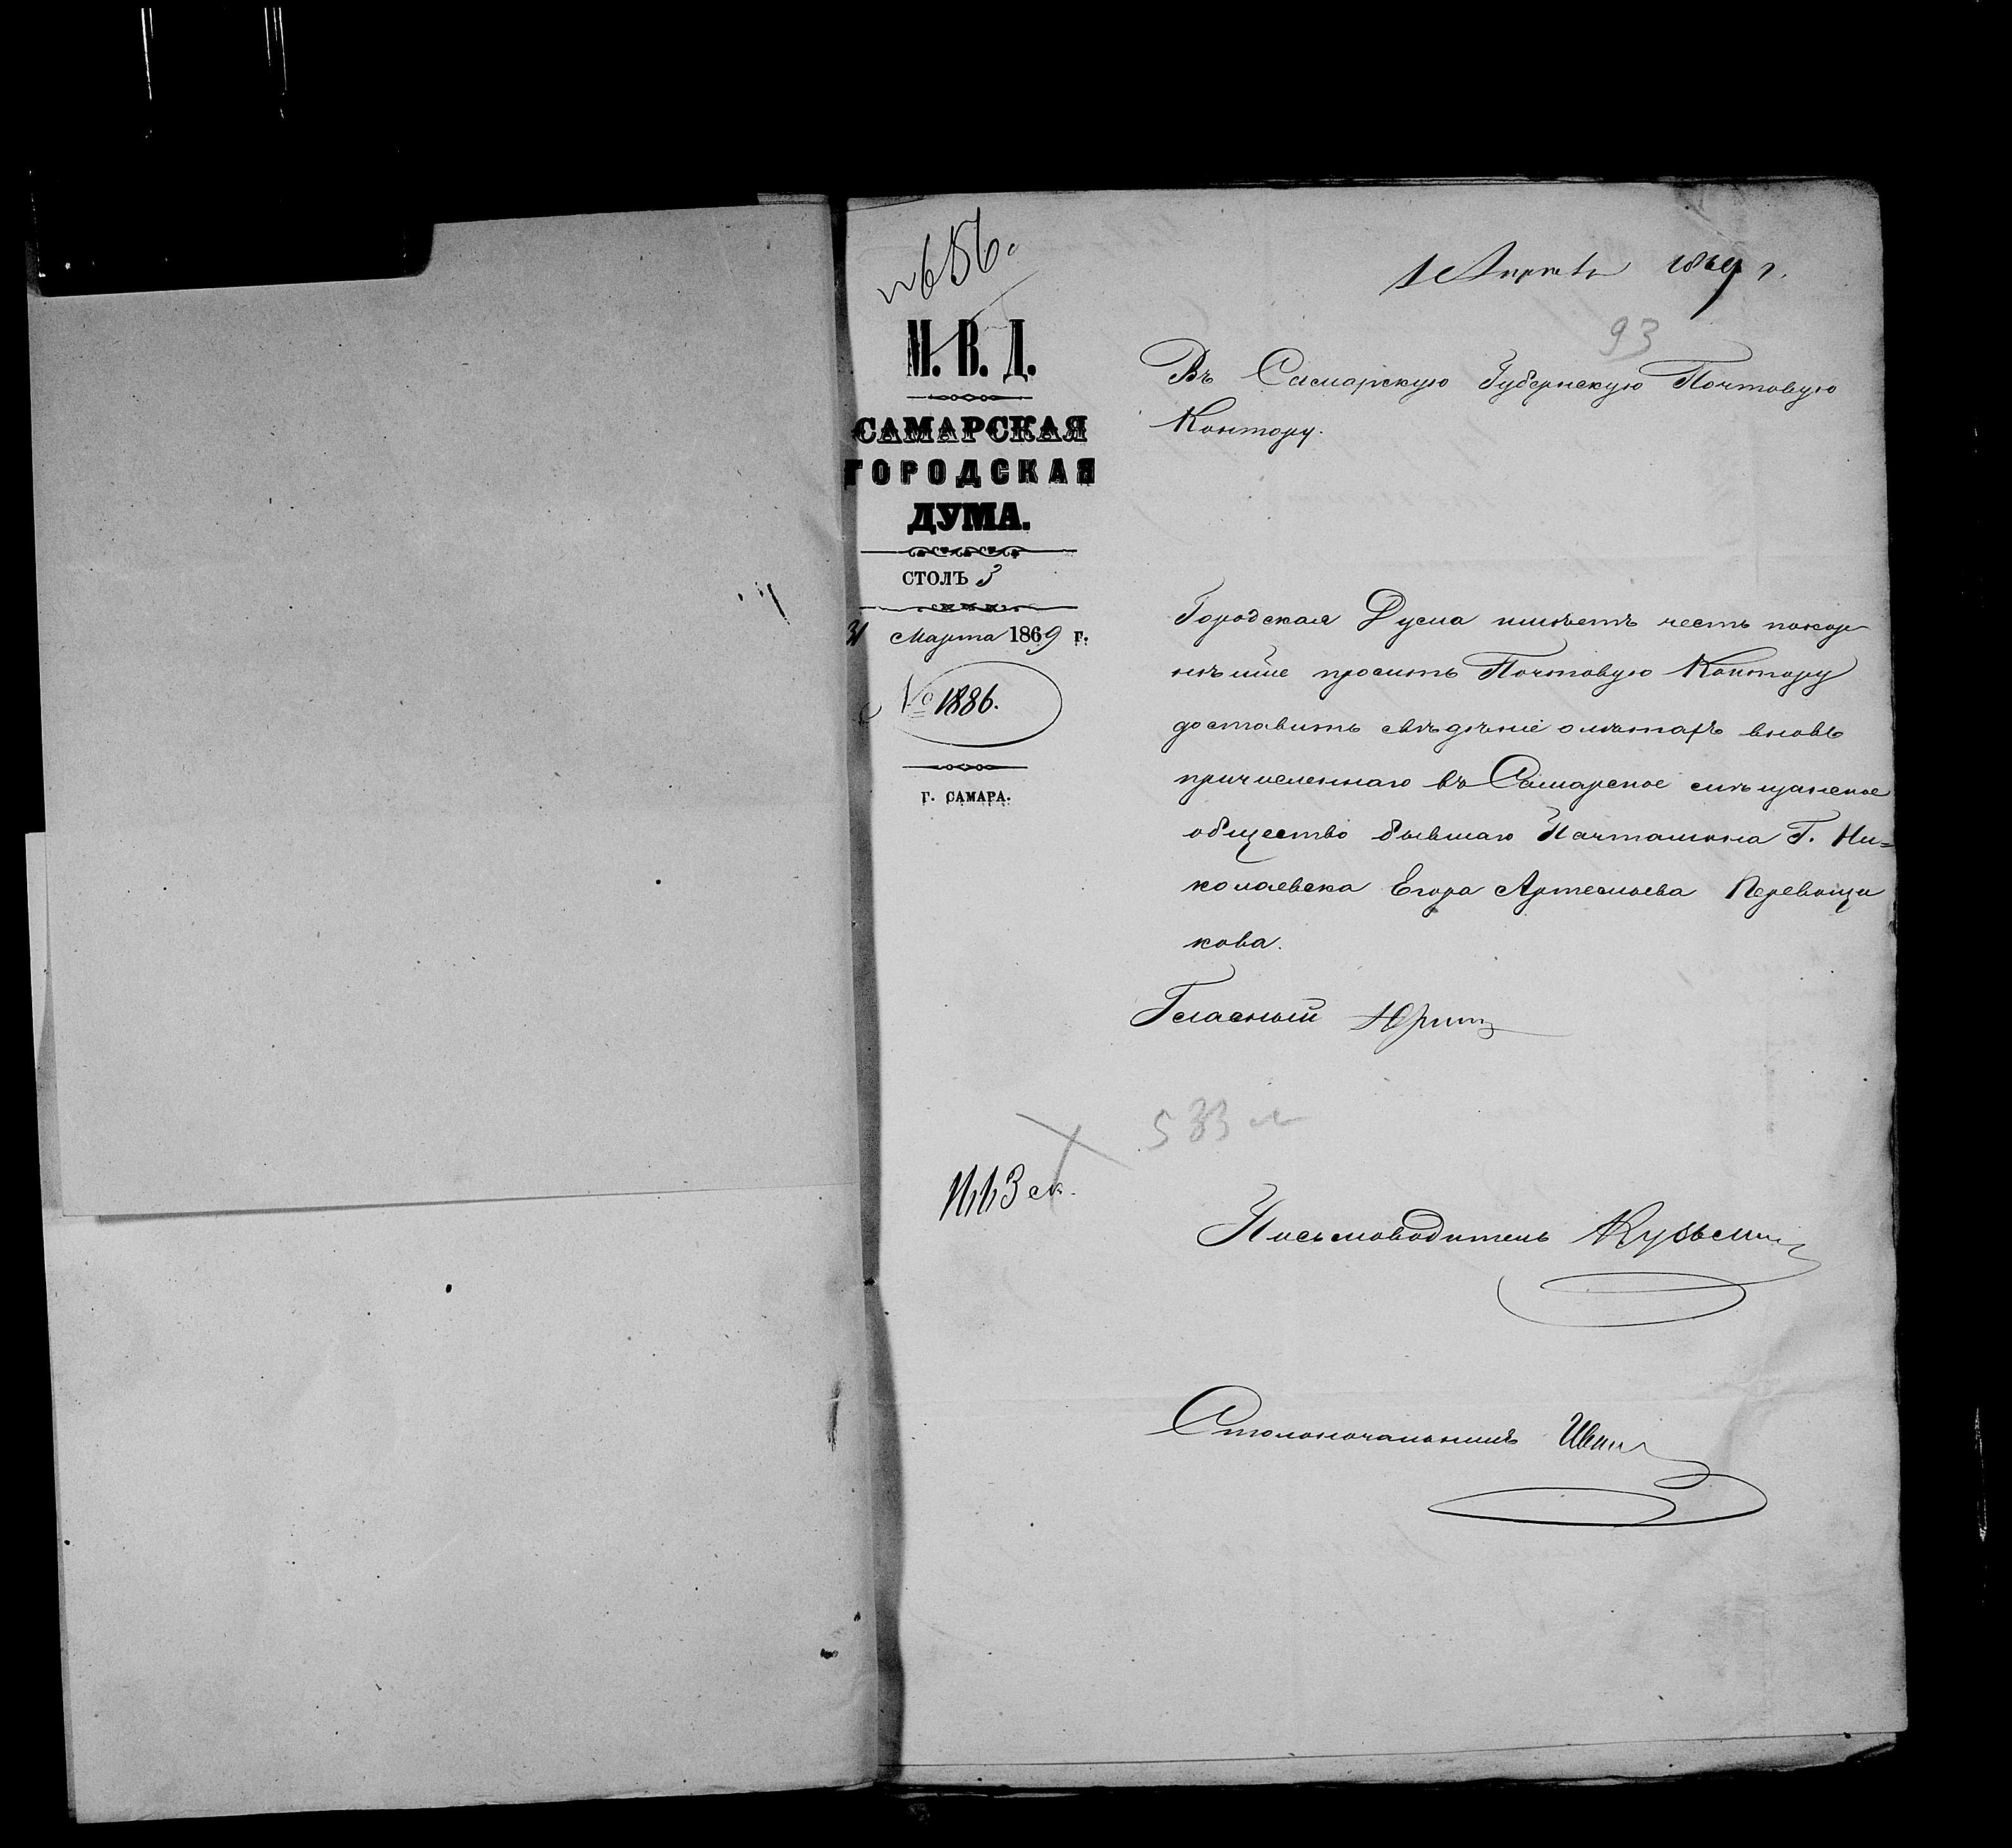 № 656.
1 Апрель 1869 г.
93
М. В. Д.
САМАРСКАЯ
ГОРОДСКАЯ
ДУМА.
СТОЛЪ 3
31 Марта 1869 г.
№ 1886.
Г. САМАРА.
Въ Самарскую Губернскую Почтовую
Контору.
Городская Дума имѣетъ честь покор
нѣйше просить Почтовую Контору
доставить свѣдѣніе о лѣтахъ вновь
причисленнаго въ Самарское мѣщанское
общество бывшаго Почталіона Г. Ни=
колаевска Егора Артемьева Перевощи
кова.
Гласный
533
Письмоводитель Кузьмин
Столоначальникъ Иван